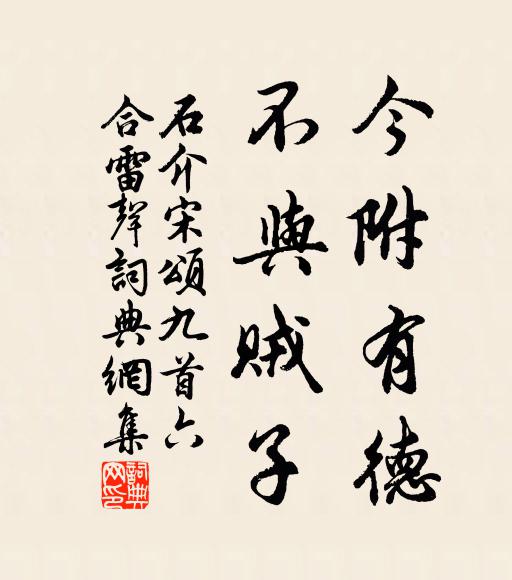 今附有德
不與賊子
石介宋頌九首六
合雷聲詞典網集
詞典
网印